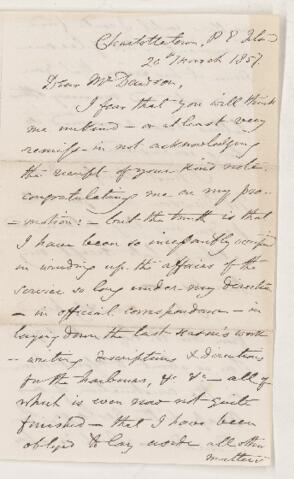 Charlottetown, P E Isld
20th March 1857.
Dear Mr Dawson,
I fear that you will think
me unkind – or at least very
remiss – in not acknowledging
the receipt of your kind note
congratulating me on my pro-
-motion: – but the truth is that
I have been so incessantly occupied
in winding up the affairs of the
service so long under my direction
– in official correspondence – in
laying down the last season's work
– writing descriptions & directions
for the harbours, &c &c – all of
which is even now not quite
finished – that I have been
obliged to lay aside all other
matters